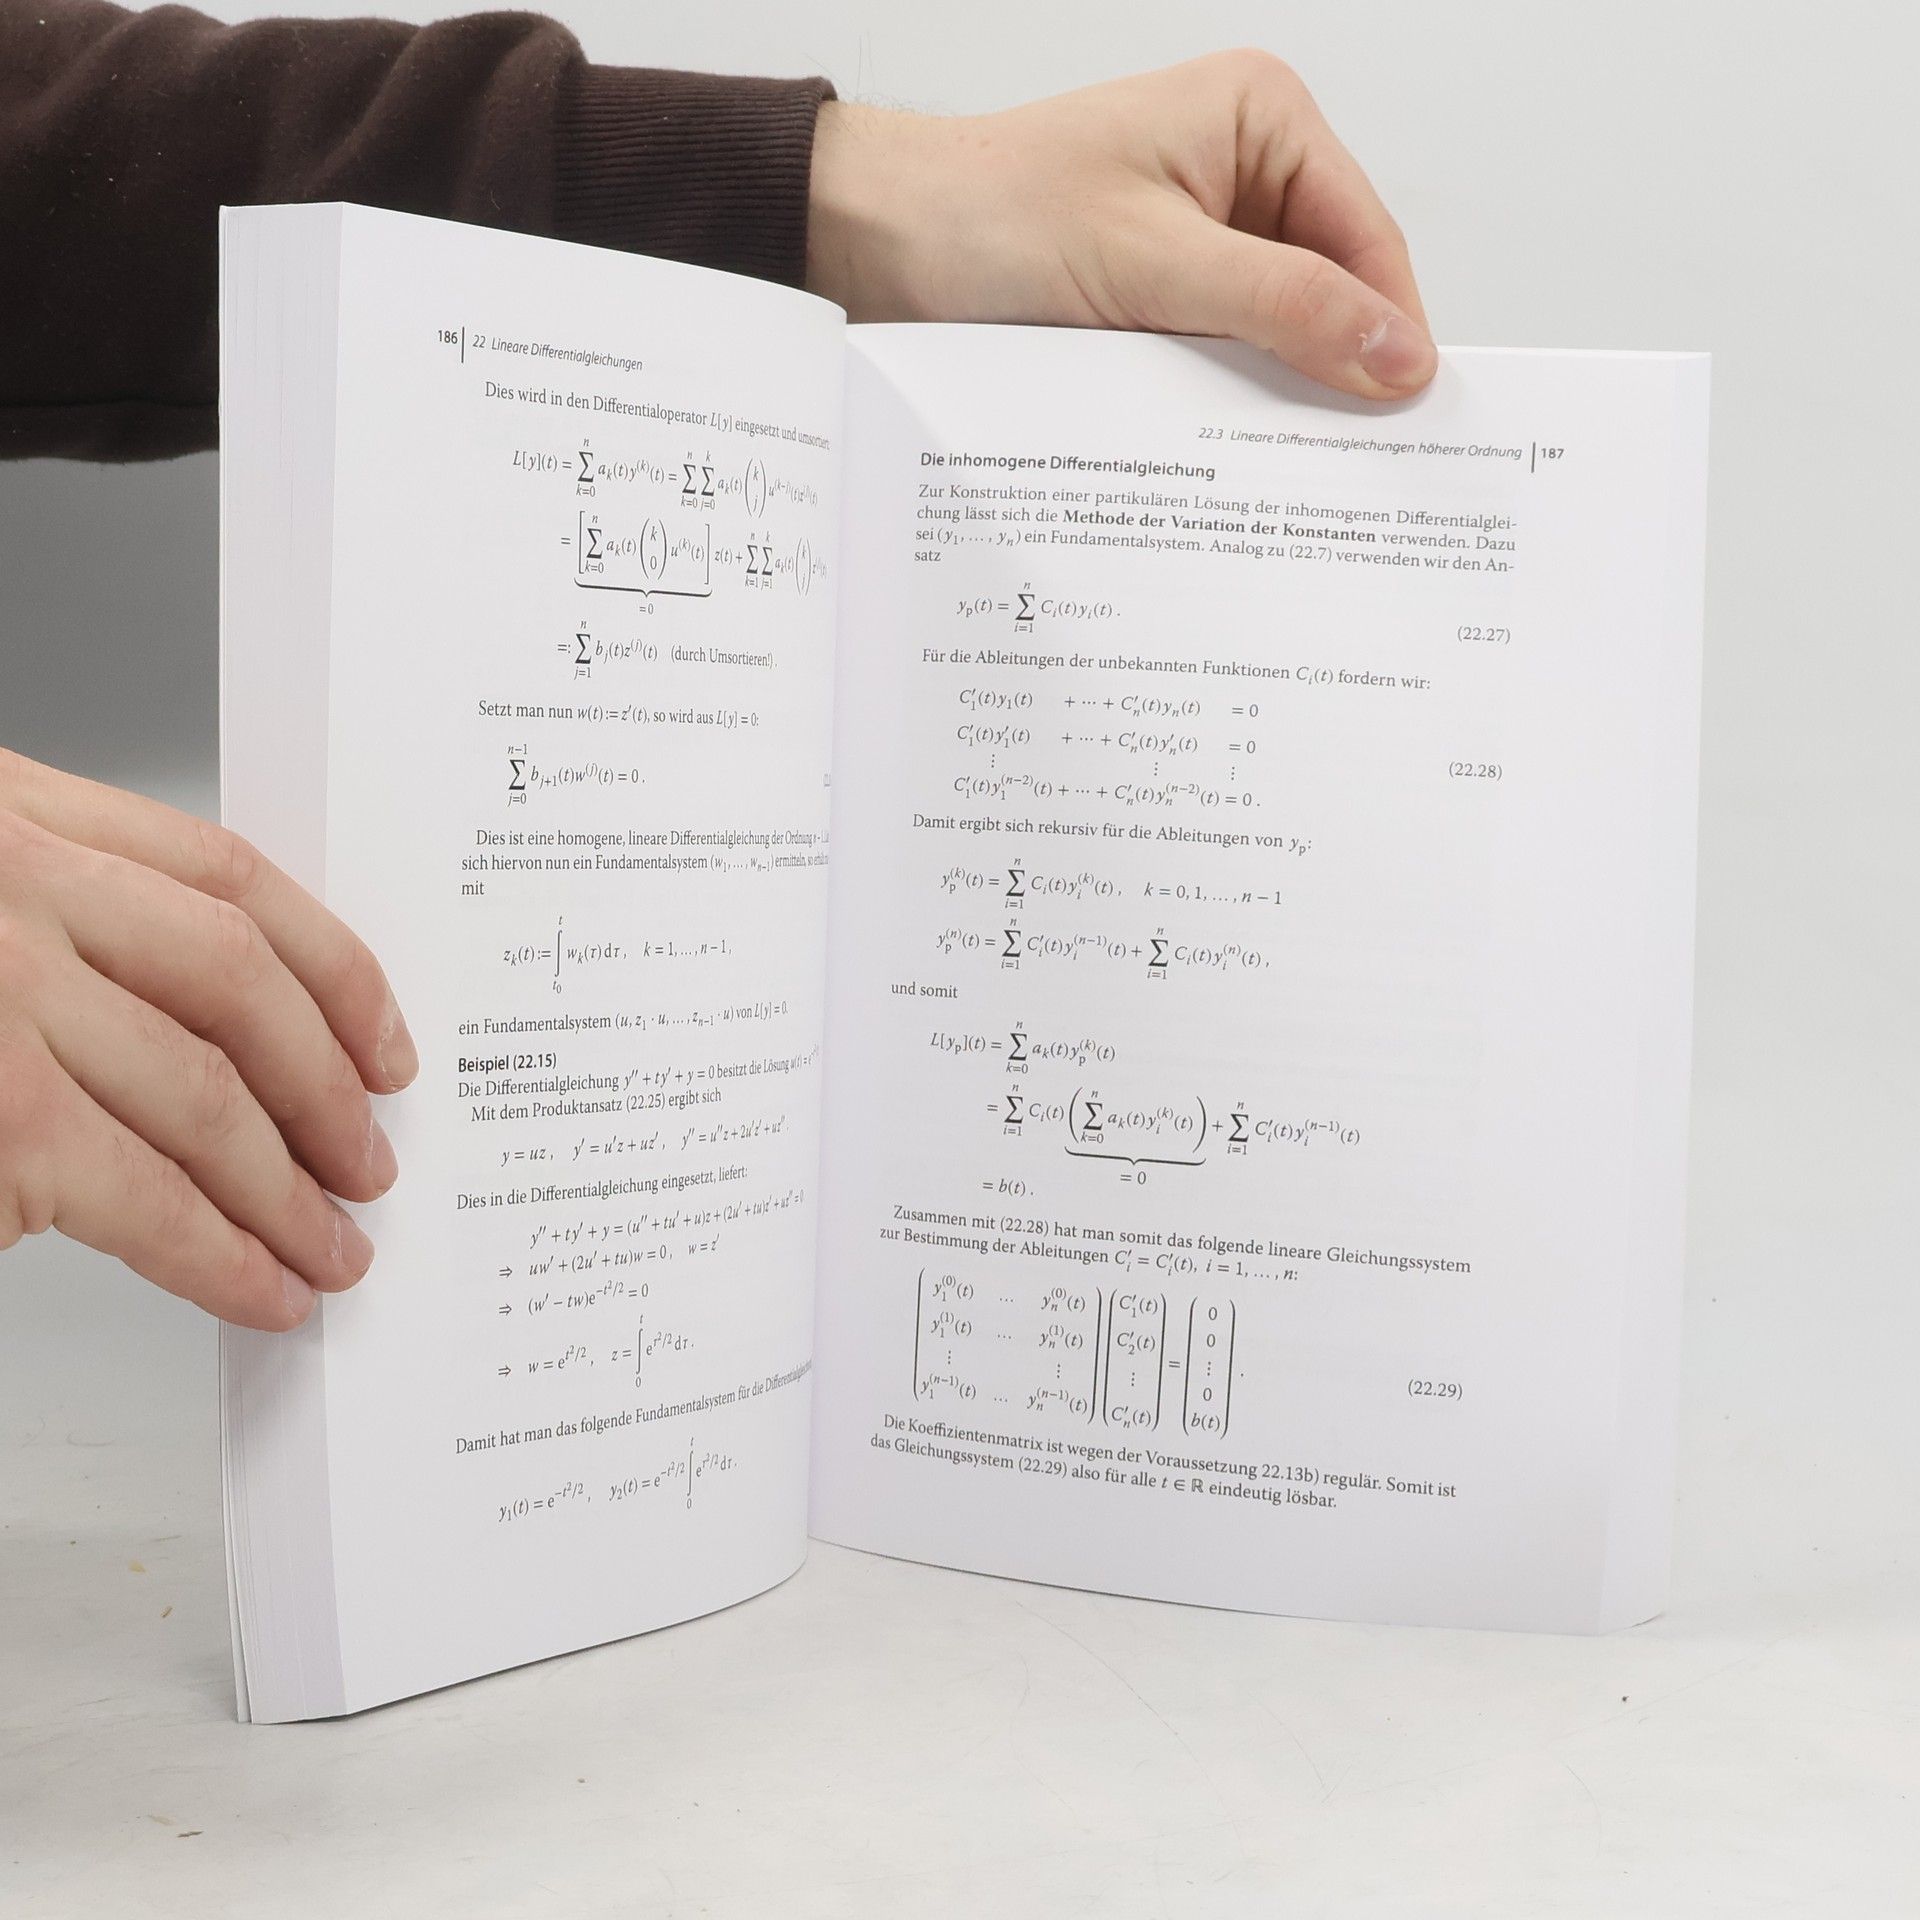 186 22 Lineare Differentialgleichungen
Dies wird in den Differentialoperator L[y] eingesetzt und umsortiert
L[y](t) = ∑_{k=0}^{n} a_k(t)y^{(k)}(t) = ∑_{k=0}^{n} ∑_{j=0}^{k} a_k(t) (k j) u^{(k−j)}(t)z^{(j)}(t)
= [∑_{k=0}^{n} a_k(t) (k 0) u^{(k)}(t)] z(t) + ∑_{k=1}^{n} ∑_{j=1}^{k} a_k(t) (k j)
=0
=: ∑_{j=1}^{n} b_j(t)z^{(j)}(t) (durch Umsortieren!).
Setzt man nun w(t) := z′(t), so wird aus L[y] = 0:
∑_{j=0}^{n−1} b_{j+1}(t)w^{(j)}(t) = 0.
Dies ist eine homogene, lineare Differentialgleichung der Ordnung n − 1.
sich hiervon nun ein Fundamentalsystem (w_1, …, w_{n−1}) ermitteln, so
mit
z_k(t) := ∫_{t_0}^{t} w_k(τ) dτ, k = 1, …, n−1,
ein Fundamentalsystem (u, z_1 · u, …, z_{n−1} · u) von L[y] = 0.
Beispiel (22.15)
Die Differentialgleichung y″ + ty′ + y = 0 besitzt die Lösung u(t) =
Mit dem Produktansatz (22.25) ergibt sich
y = uz, y′ = u′z + uz′, y″ = u″z + 2u′z′ + uz″.
Dies in die Differentialgleichung eingesetzt, liefert:
y″ + ty′ + y = (u″ + tu′ + u)z + (2u′ + tu)z′ + uz″ = 0
⇒ uw′ + (2u′ + tu)w = 0, w = z′
⇒ (w′ − tw)e^{−t²/2} = 0
⇒ w = e^{t²/2}, z = ∫_{0}^{t} e^{τ²/2} dτ.
Damit hat man das folgende Fundamentalsystem für die
y_1(t) = e^{−t²/2}, y_2(t) = e^{−t²/2} ∫_{0}^{t} e^{τ²/2} dτ.
22.3 Lineare Differentialgleichungen höherer Ordnung 187
Die inhomogene Differentialgleichung
Zur Konstruktion einer partikulären Lösung der inhomogenen Differentialglei-
chung lässt sich die Methode der Variation der Konstanten verwenden. Dazu
sei (y_1, …, y_n) ein Fundamentalsystem. Analog zu (22.7) verwenden wir den An-
satz
y_p(t) = ∑_{i=1}^{n} C_i(t)y_i(t). (22.27)
Für die Ableitungen der unbekannten Funktionen C_i(t) fordern wir:
C′_1(t)y_1(t) + ⋯ + C′_n(t)y_n(t) = 0
C′_1(t)y′_1(t) + ⋯ + C′_n(t)y′_n(t) = 0
⋮ ⋮ ⋮ (22.28)
C′_1(t)y_1^{(n−2)}(t) + ⋯ + C′_n(t)y_n^{(n−2)}(t) = 0.
Damit ergibt sich rekursiv für die Ableitungen von y_p:
y_p^{(k)}(t) = ∑_{i=1}^{n} C_i(t)y_i^{(k)}(t), k = 0, 1, …, n − 1
y_p^{(n)}(t) = ∑_{i=1}^{n} C′_i(t)y_i^{(n−1)}(t) + ∑_{i=1}^{n} C_i(t)y_i^{(n)}(t),
und somit
L[y_p](t) = ∑_{k=0}^{n} a_k(t)y_p^{(k)}(t)
= ∑_{i=1}^{n} C_i(t) (∑_{k=0}^{n} a_k(t)y_i^{(k)}(t)) + ∑_{i=1}^{n} C′_i(t)y_i^{(n−1)}(t)
= 0
= b(t).
Zusammen mit (22.28) hat man somit das folgende lineare Gleichungssystem
zur Bestimmung der Ableitungen C′_i = C′_i(t), i = 1, …, n:
y_1^{(0)}(t) … y_n^{(0)}(t) C′_1(t) 0
y_1^{(1)}(t) … y_n^{(1)}(t) C′_2(t) 0
⋮ ⋮ ⋮ = ⋮ . (22.29)
0
y_1^{(n−1)}(t) … y_n^{(n−1)}(t) C′_n(t) b(t)
Die Koeffizientenmatrix ist wegen der Voraussetzung 22.13b) regulär. Somit ist
das Gleichungssystem (22.29) also für alle t ∈ ℝ eindeutig lösbar.